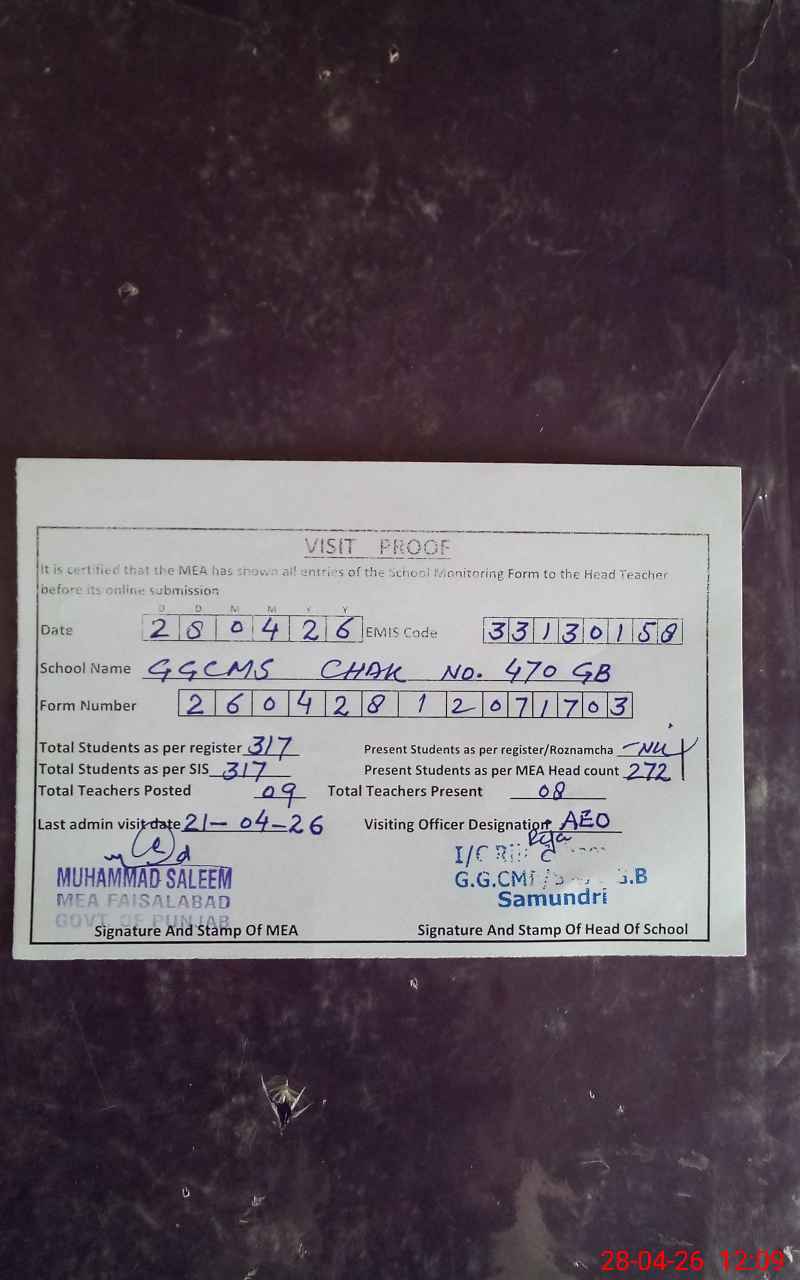 VISIT PROOF
It is certified that the MEA has shown all entries of the School Monitoring Form to the Head Teacher
before its online submission
D D M M Y Y
Date 280426 EMIS Code 33130158
School Name GGCMS CHAK NO. 470 GB
Form Number 26042812071703
Total Students as per register 317 Present Students as per register/Roznamcha
Total Students as per SIS 317 Present Students as per MEA Head count 272
Total Teachers Posted 09 Total Teachers Present 08
Last admin visit date 21-04-26 Visiting Officer Designation AEO
MUHAMMAD SALEEM
MEA FAISALABAD
GOVT. OF PUNJAB
I/C
G.G.CM G.B
Samundri
Signature And Stamp Of MEA Signature And Stamp Of Head Of School
28-04-26 12:09